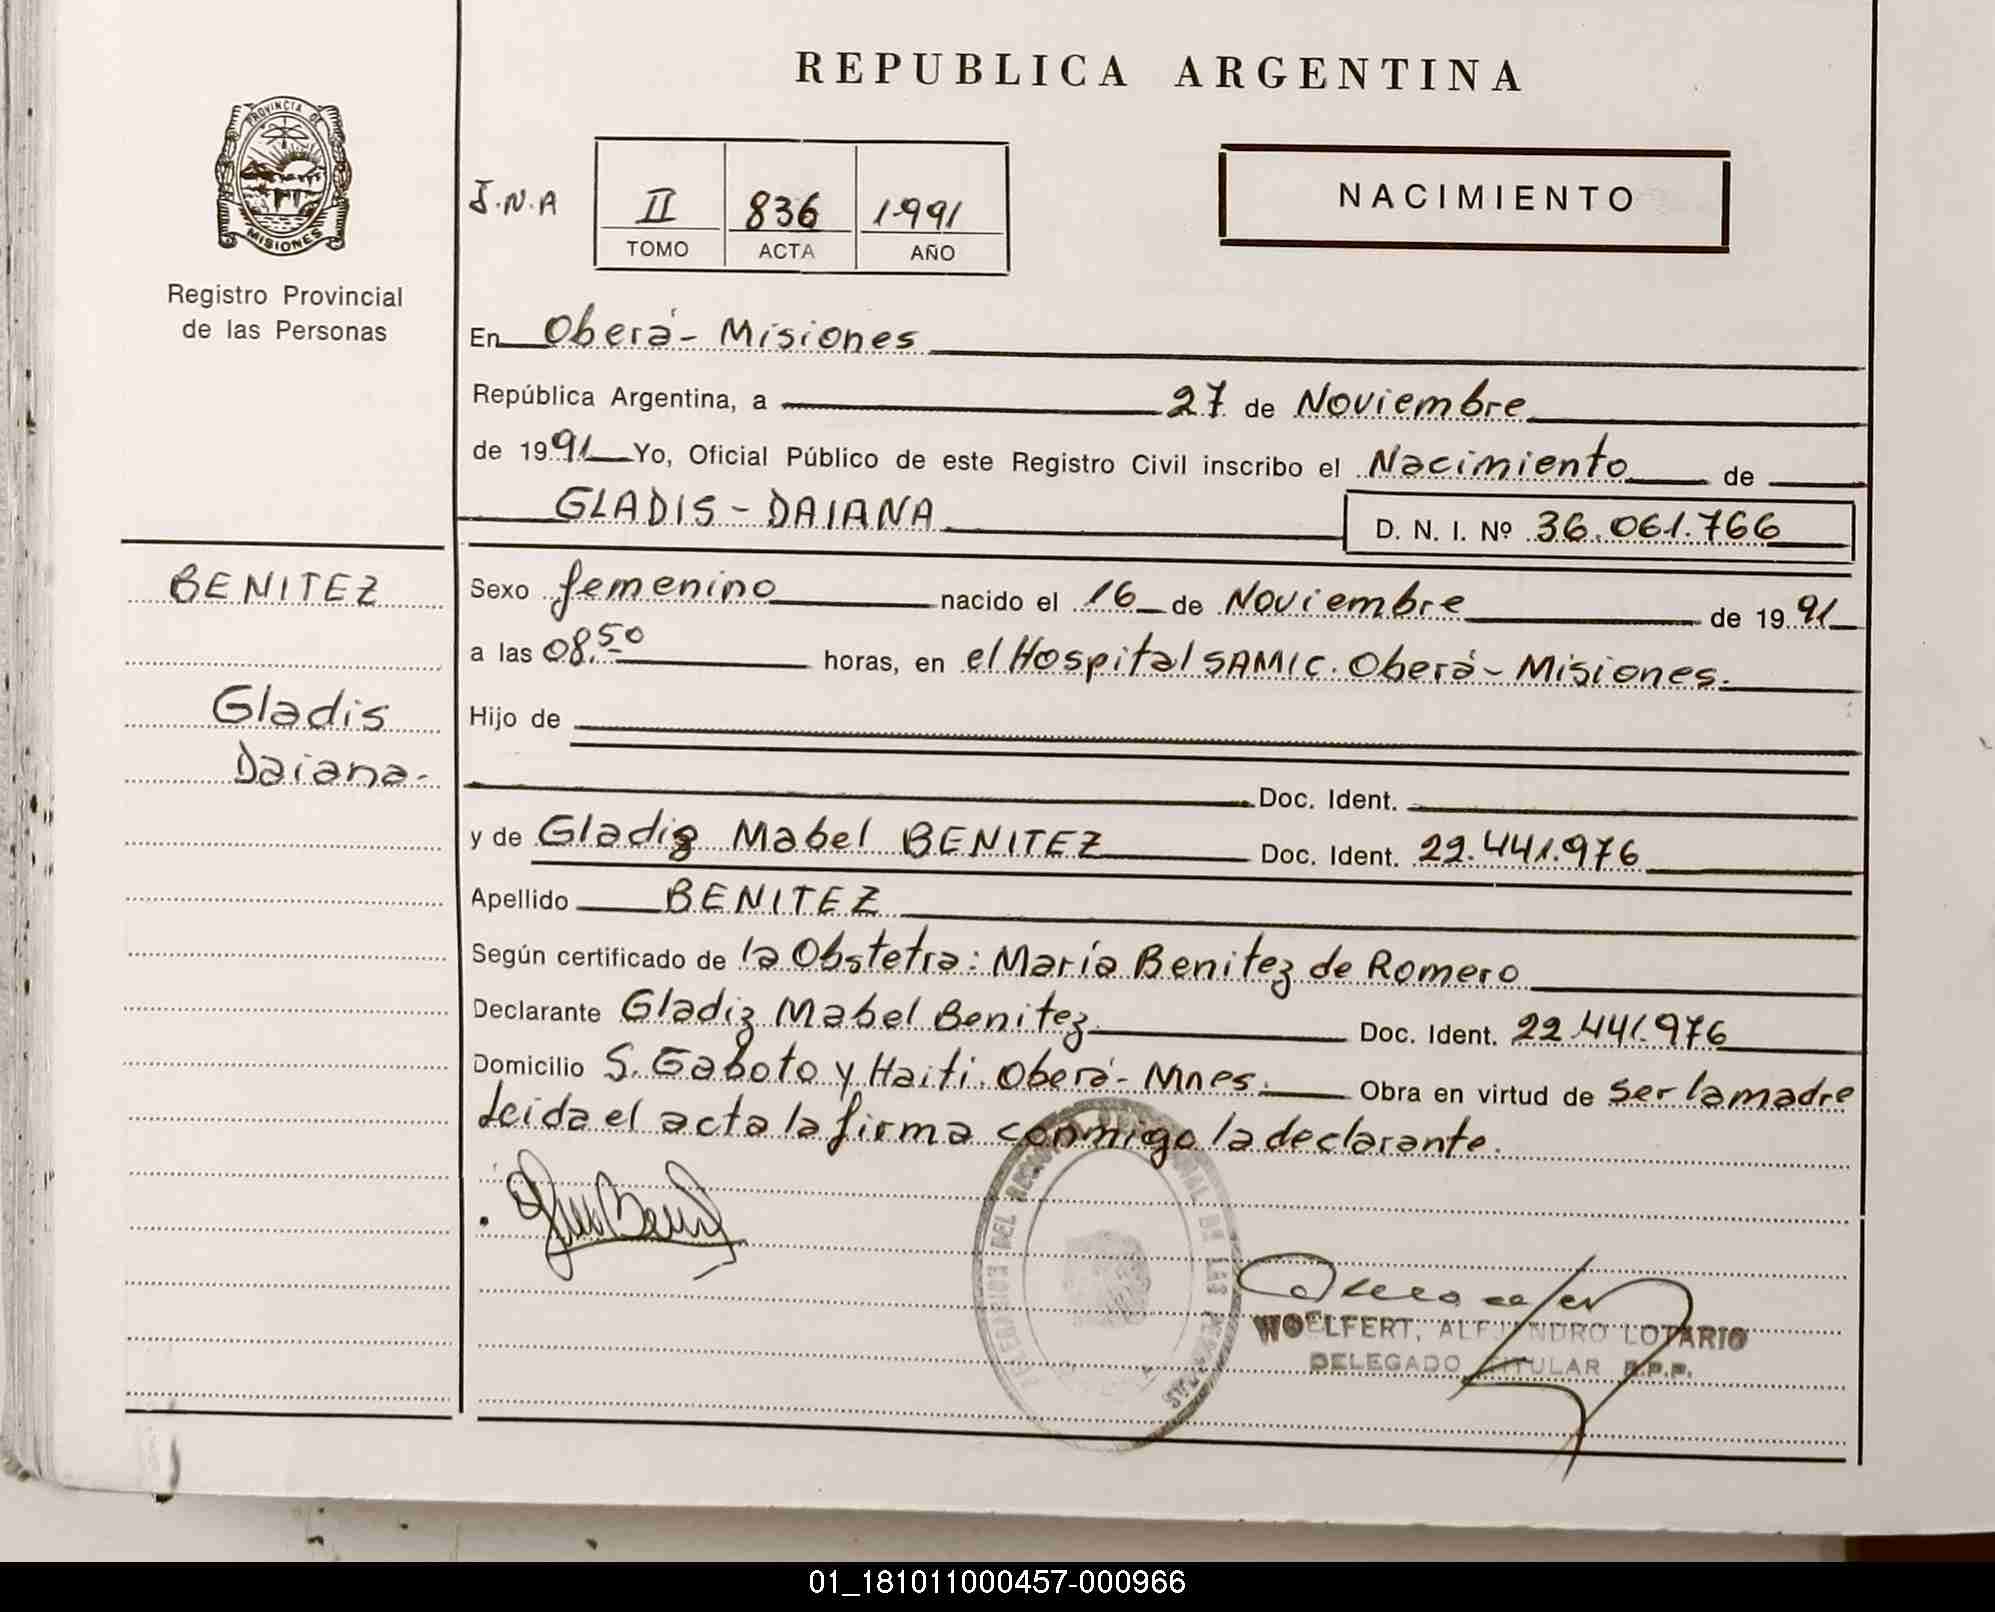 REPUBLICA ARGENTINA
PROVINCIA DE
MISIONES
Registro Provincial
de las Personas
J.N.A
II 836 1991
TOMO ACTA AÑO
NACIMIENTO
En Oberá - Misiones
República Argentina, a 27 de Noviembre
de 1991 Yo, Oficial Público de este Registro Civil inscribo el Nacimiento de
GLADIS - DAIANA D. N. I. Nº 36.061.766
BENITEZ
Gladis
Daiana.-
Sexo femenino nacido el 16 de Noviembre de 1991
a las 08.50 horas, en el Hospital SAMIC. Oberá - Misiones.
Hijo de
Doc. Ident.
y de Gladiz Mabel BENITEZ Doc. Ident. 22.441.976
Apellido BENITEZ
Según certificado de la Obstetra: María Benitez de Romero
Declarante Gladiz Mabel Benitez Doc. Ident. 22.441.976
Domicilio S. Gaboto y Haiti. Oberá - Mnes. Obra en virtud de ser la madre
Leida el acta la firma conmigo la declarante.
WOELFERT, ALEJANDRO LOTARIO
DELEGADO TITULAR R.P.P.
01_181011000457-000966